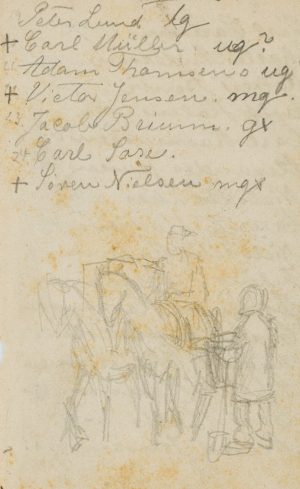 Peter Lund lg
+ Carl Müller. ug?
Adam Thomsen ug
+ Victor Jensen. mg.
Jacob Briumm. gx
Carl Sase.
+ Søren Nielsen mgx